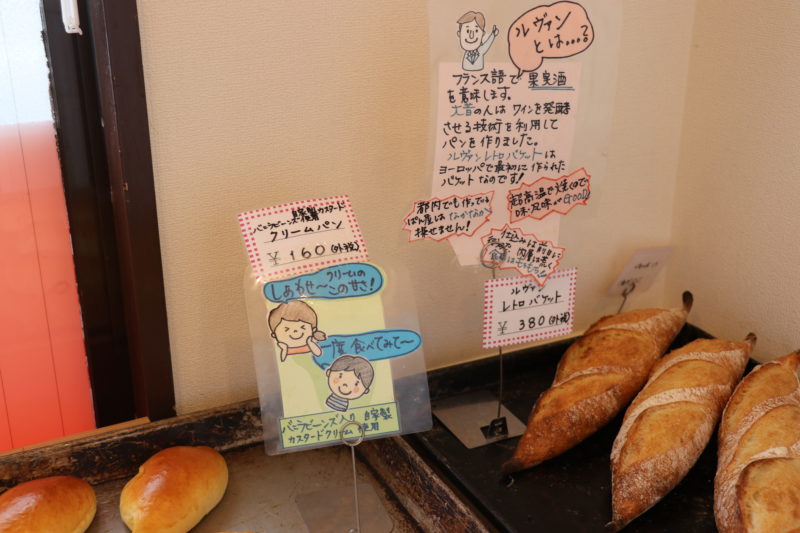 ルヴァン
とは…?
フランス語で果実酒
を意味します。
大昔の人はワインを発酵
させる技術を利用して
パンを作りました。
ルヴァンレトロバケットは
ヨーロッパで最初に作られた
バケットなのです!
都内でも作っている
ぱん屋はなかなか
探せません!
超高温で焼くので
味・風味がGOOD
仕込みは前日に
内層は荒く
食感はもちもち
自家製カスタード
バニラビーンズ
クリームパン
¥160(外税)
クリームの
しあわせ〜この甘さ!
一度食べてみて〜
バニラビーンズ入り自家製
カスタードクリーム使用
ルヴァン
レトロバケット
¥380(外税)